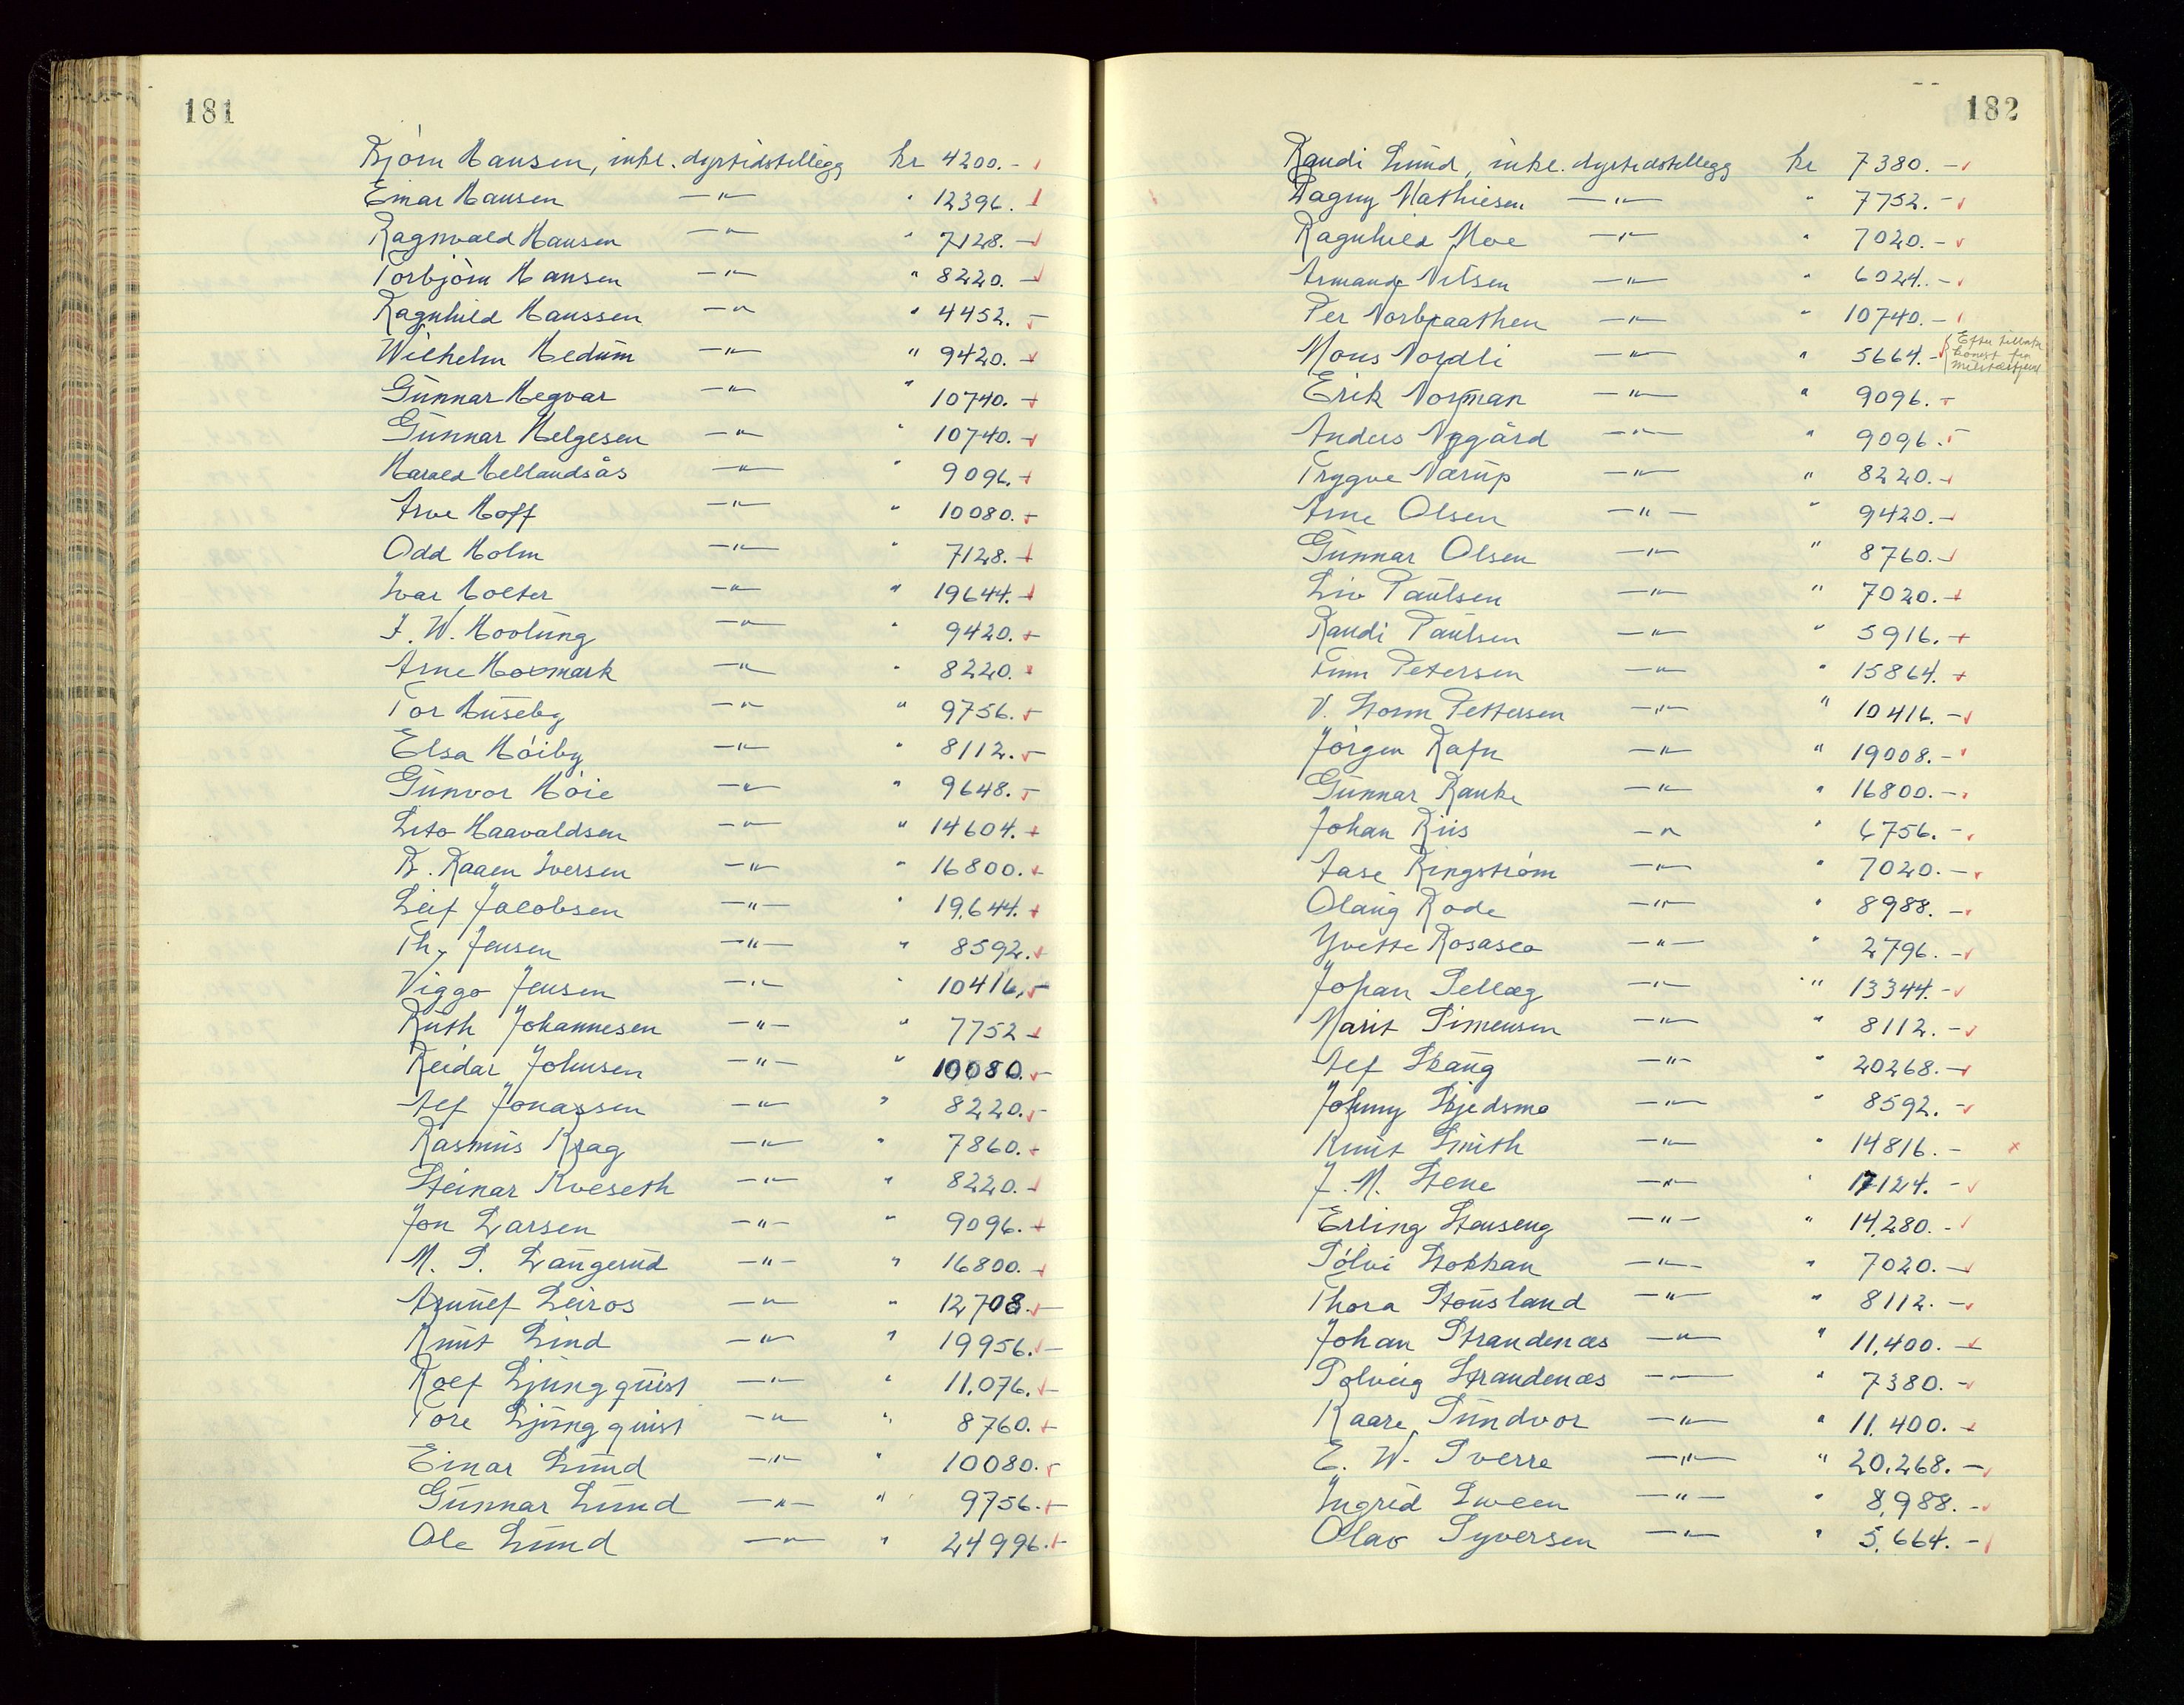 181
Bjørn Hansen, inkl. dyrtidstillegg kr 4200.-
Einar Hansen —"— " 12396.-
Ragnvald Hansen —"— " 7128.-
Torbjørn Hansen —"— " 8220.-
Ragnhild Hanssen —"— " 4452.-
Wilhelm Hedum —"— " 9420.-
Gunnar Hegvar —"— " 10740.-
Gunnar Helgesen —"— " 10740.-
Harald Hellandsås —"— " 9096.-
Arve Hoff —"— " 10080.-
Odd Holm —"— " 7128.-
Ivar Holter —"— " 19644.-
F. W. Hovlung —"— " 9420.-
Arne Hoxmark —"— " 8220.
Tor Huseby —"— " 9756.-
Elsa Høiby —"— " 8112.-
Gunvor Høie —"— " 9648.-
Haavaldsen —"— " 14604.-
B. Raaen Iversen —"— " 16800.-
Leif Jacobsen —"— " 19.644.-
Th. Jensen —"— " 8592.-
Viggo Jensen —"— " 10416.-
Ruth Johannesen —"— " 7752-
Reidar Johnsen —"— " 10080.-
Alf Jonassen —"— " 8220.-
Rasmus Krag —"— " 7860.-
Steinar Kveseth —"— " 8220.-
Jon Larsen —"— " 9096.-
M. S. Laugerud —"— " 16800.-
Arnulf Leiros —"— " 12708.-
Knut Lind —"— " 19956.-
Rolf Ljungquist —"— " 11.076.-
Tore Ljungquist —"— " 8760.-
Einar Lund —"— " 10080.-
Gunnar Lund —"— " 9756.-
Ole Lund —"— " 24996.-
182
Randi Lund, inkl. dyrtidstillegg kr 7380.-
Dagny Mathiesen —"— " 7752.-
Ragnhild Moe —"— " 7020.-
Armand Nilsen —"— " 6024.-
Per Norbraathen —"— " 10740.-
Mons Nordli —"— " 5664.- Efter tilbakekomst fra militærtjen
Erik Norman —"— " 9096.-
Anders Nygård —"— " 9096.-
Trygve Nærup —"— " 8220.-
Arne Olsen —"— " 9420.-
Gunnar Olsen —"— " 8760.-
Liv Paulsen —"— " 7020.-
Randi Paulsen —"— " 5916.-
Finn Petersen —"— " 15864.-
V. Storm Pettersen —"— " 10416.-
Jørgen Rafn —"— " 19008.-
Gunnar Ranke —"— " 16800.-
Johan Riis —"— " 6756.-
Aase Ringstrøm —"— " 7020.-
Olaug Rode —"— " 8988.-
Yvette Rosasco —"— " 2796.-
Johan Sellæg —"— " 13344.-
Marit Simensen —"— " 8112.-
Alf Skaug —"— " 20268.-
Johnny Skjedsmo —"— " 8592.-
Knut Smith —"— " 14816.- x
J. M. Stene —"— " 17124.-
Erling Stenseng —"— " 14.280.-
Sólvi Stokkan —"— " 7020.-
Thora Stousland —"— " 8112.-
Johan Strandenæs —"— " 11.400.-
Solveig Strandenæs —"— " 7380.-
Kaare Sundvor —"— " 11.400.-
E. W. Sverre —"— " 20.268.-
Ingrid Sween —"— " 8.988.-
Olav Syversen —"— " 5.664.-